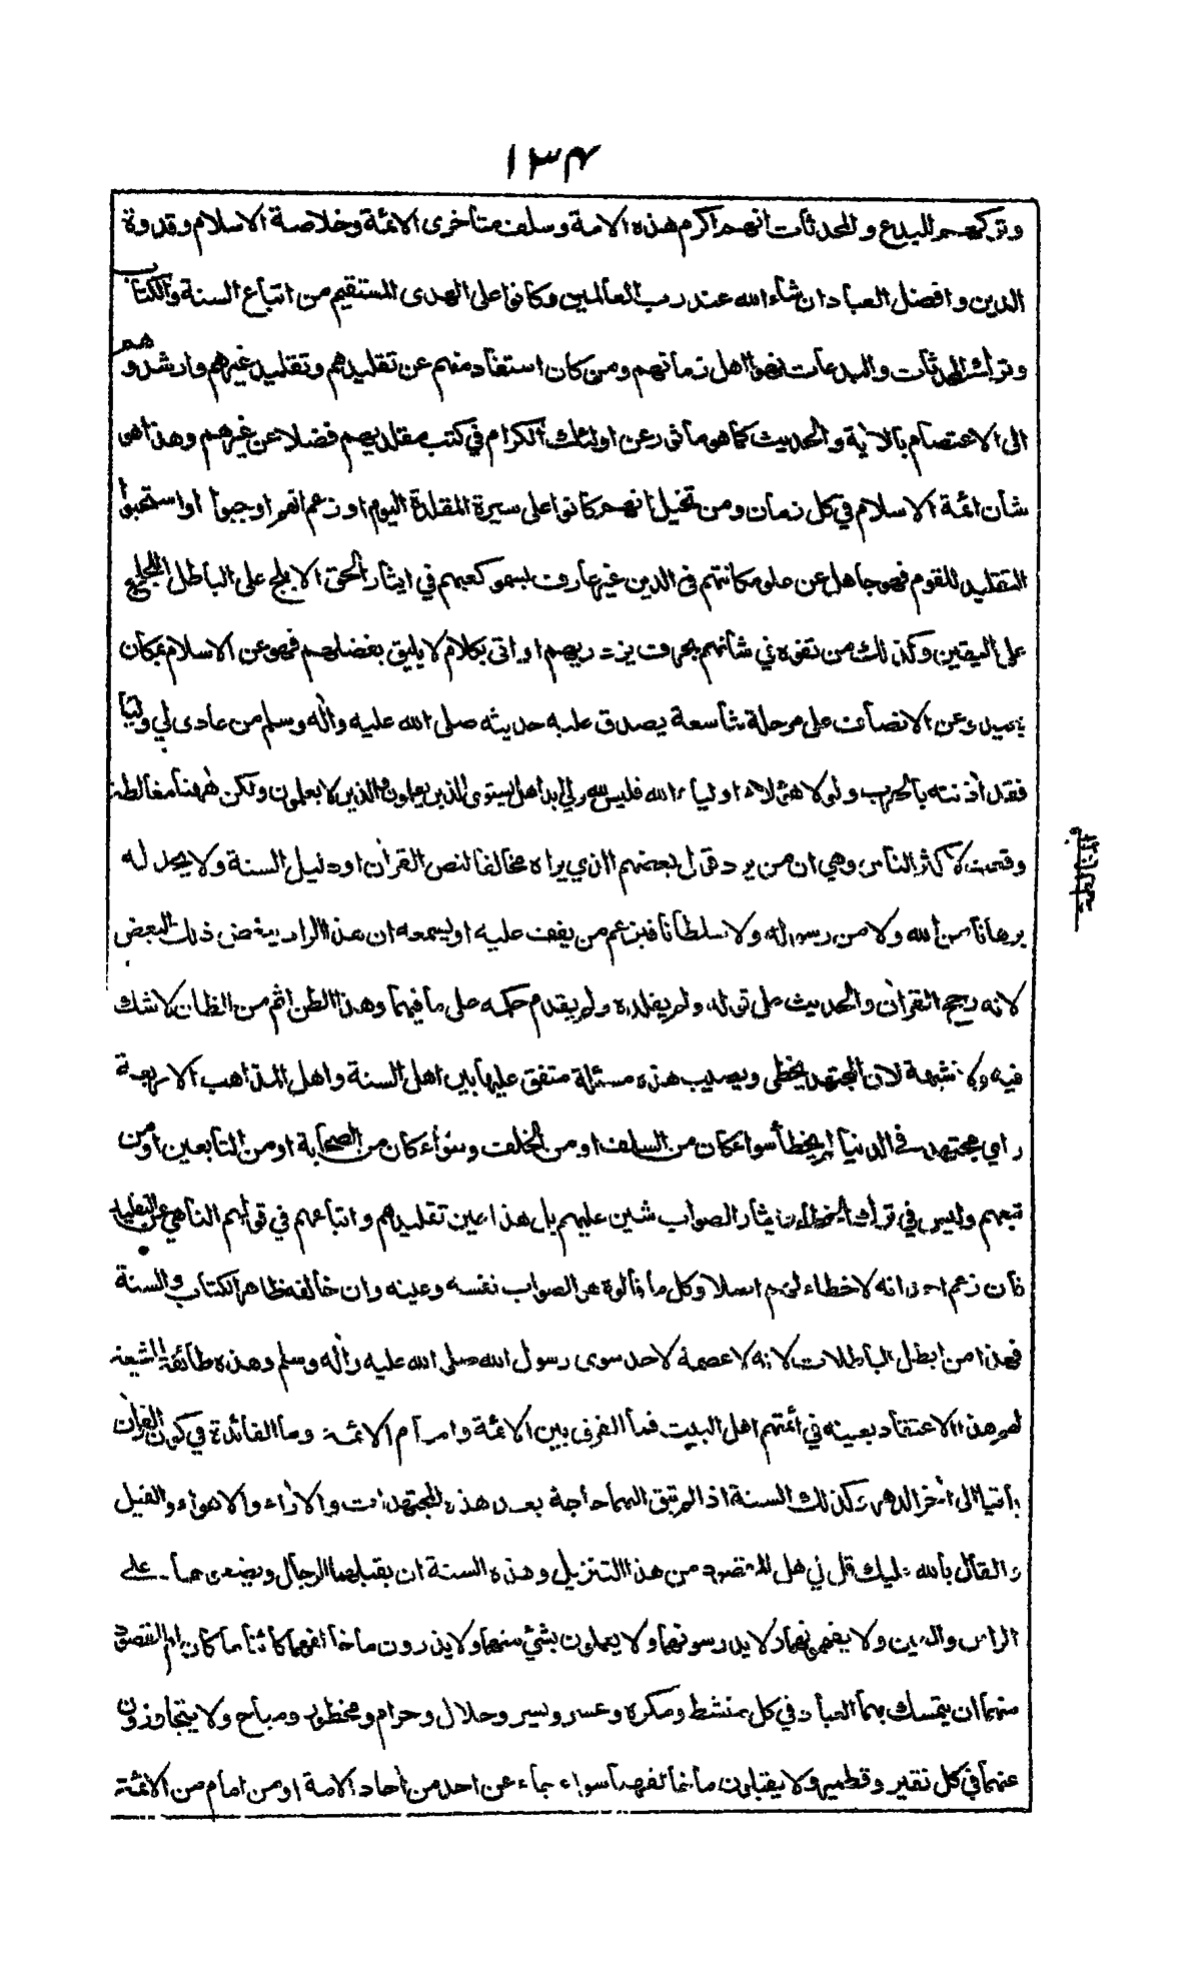 ١٣٤
وتركهم للبدع والمحدثات انهم اكرم هذه الامة وسلف متأخرى الائمة وخلاصة الاسلام وقدوة
الدين وافضل العباد ان شاء الله عند رب العالمين وكانوا على الهدى المستقيم من اتباع السنة والكتاب
وترك المحدثات والبدعات نهوا اهل زمانهم ومن كان استفاد منهم عن تقليدهم وتقليد غيرهم وارشدوهم
الى الاعتصام بالاية والحديث كما هو ماثور عن اولئك الكرام في كتب مقلديهم فضلا عن غيرهم وهذا هو
شأن ائمة الاسلام في كل زمان ومن تخيل انهم كانوا على سيرة المقلدة اليوم او زعم انهم اوجبوا او استحبوا
التقليد للقوم فهو جاهل عن علو مكانتهم فى الدين غير عارف بسمو كعبهم في ايثار الحق الابلج على الباطل اللجلج
على اليقين وكذلك من تفوه في شأنهم بحرف يزدريهم او اتى بكلام لا يليق بفضلهم فهو عن الاسلام بمكان
بعيد وعن الانصاف على مرحلة شاسعة يصدق عليه حديثه صلى الله عليه واٰله وسلم من عادى لي وليا
فقد اٰذنته بالحرب ولو لا هؤلاء اولياء الله فليس لله ولي ابدا هل يستوى الذين يعلمون والذين لا يعلمون ولكن ههنا مغالطة
وقعت لاكثر الناس وهي ان من يرد قول بعضهم الذي يراه مخالفا لنص القراٰن او دليل السنة ولا يجد له
برهانا من الله ولا من رسوله ولا سلطانا فيزعم من يقف عليه او يسمعه ان هذا الراد يبغض ذلك البعض
لانه رجح القراٰن والحديث على قوله ولم يقلده ولم يقدم حكمه على ما فيهما وهذا الظن اثم من الظان لا شك
فيه ولا شبهة لان المجتهد يخطى ويصيب هذه مسئلة متفق عليها بين اهل السنة واهل المذاهب الاربعة
واي مجتهد في الدنيا لم يخطأ سواء كان من السلف او من الخلف وسواء كان من الصحابة او من التابعين او من
تبعهم وليس في ترك الخطاء وايثار الصواب شين عليهم بل هذا عين تقليدهم واتباعهم في قولهم الناهي عن التقليد
فان زعم احد انه لا خطاء لهم اصلا وكل ما قالوه هو الصواب نفسه وعينه وان خالفه ظاهر الكتاب والسنة
فهذا من ابطل الباطلات لانه لا عصمة لاحد سوى رسول الله صلى الله عليه واٰله وسلم وهذه طائفة الشيعة
لهم هذا الاعتقاد بعينه في أئمتهم اهل البيت فما الفرق بين الائمة وامام الائمة وما الفائدة في كون القراٰن
باقيا الى اٰخر الدهر وكذلك السنة اذ لم تبق اليهما حاجة بعد هذه المجتهدات والاٰراء والاهواء والقيل
والقال بالله عليك قل لي هل المقصود من هذا التنزيل وهذه السنة ان يقبلهما الرجال ويضعوهما على
الراس والعين ولا يفهمونهما ولا يدرسونهما ولا يعملون بشئ منهما ولا يذرون ما خالفهما كائنا ما كان ام المقصود
منهما ان يتمسك بهما العباد في كل منشط ومكره وعسر ويسر وحلال وحرام ومحظور ومباح ولا يتجاوزون
عنهما في كل نقير وقطمير ولا يقبلون ما خالفهما سواء جاء عن احد من اٰحاد الامة او من امام من الائمة